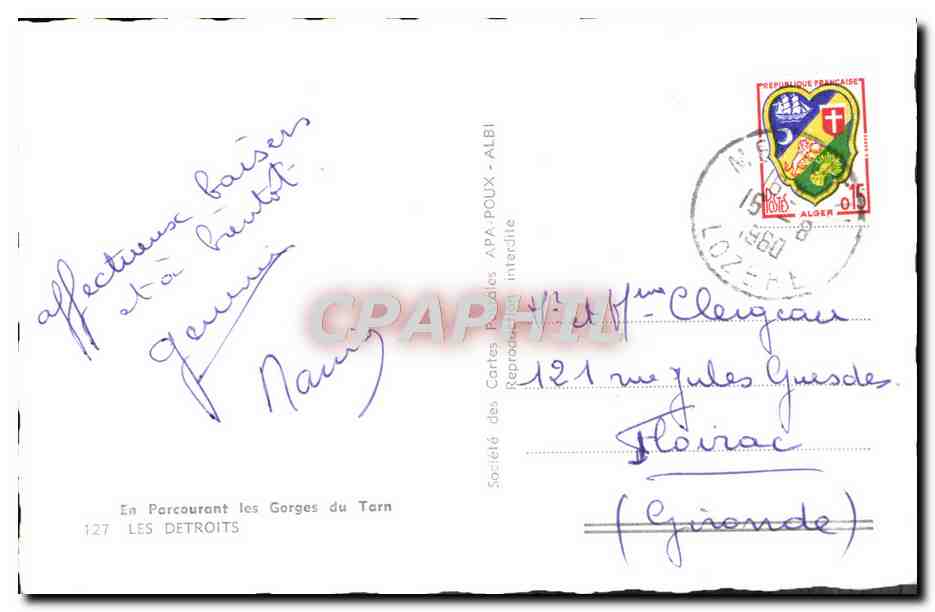 affectueux baisers
et à bientôt
En Parcourant les Gorges du Tarn
127 LES DETROITS
Société des Cartes Postales APA-POUX - ALBI
Reproduction interdite
CPAPHIL
REPUBLIQUE FRANÇAISE
POSTES
0,15
ALGER
15 - 8
1960
LOZERE
Mr et Mme Clergeau
121 rue Jules Guesdes
Floirac
(Gironde)